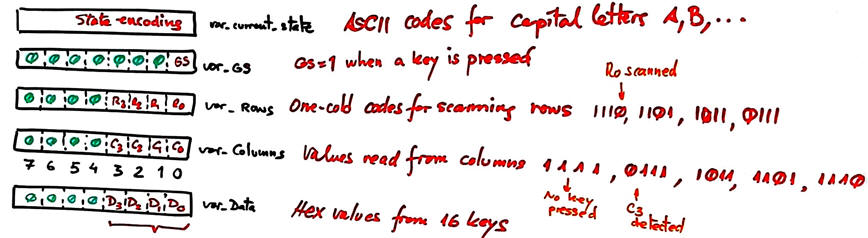 State encoding var_current_state ASCII codes for capital letters A, B, ...
0 0 0 0 0 0 0 GS var_GS GS=1 when a key is pressed
R0 scanned
0 0 0 0 R3 R2 R1 R0 var_Rows One-cold codes for scanning rows 1110, 1101, 1011, 0111
0 0 0 0 C3 C2 C1 C0 var_Columns Values read from columns 1111, 0111, 1011, 1101, 1110
7 6 5 4 3 2 1 0
No key pressed
C3 detected
0 0 0 0 D3 D2 D1 D0 var_Data Hex values from 16 keys